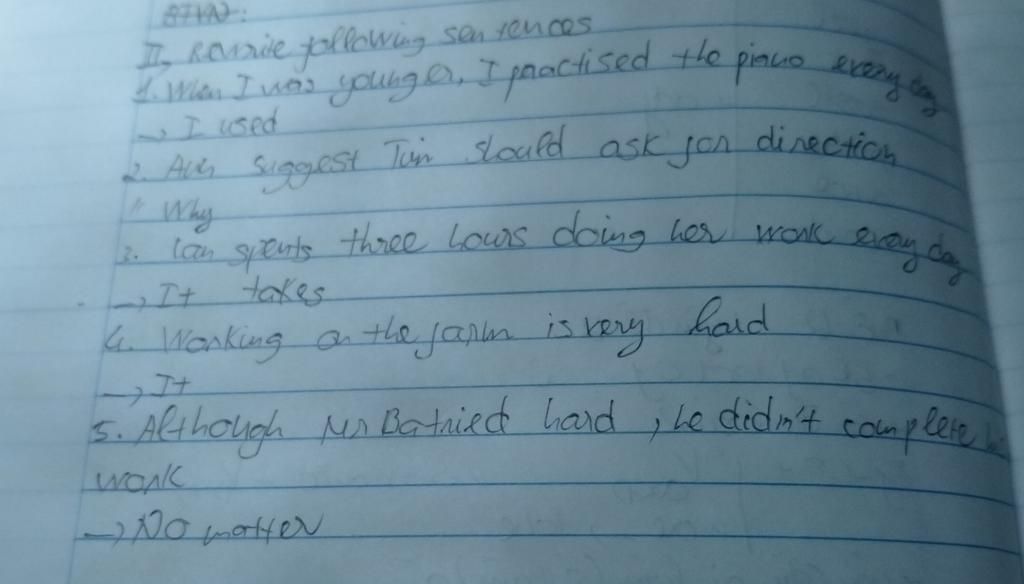 II, Rewrite following sentences
1. When I was younger, I practised the piano every day
→ I used
2. suggest Tuin should ask for direction
" Why
3. Lan spents three hours doing her work every day
→ It takes
4. Working on the farm is very hard
→ It
5. Although Mr Ba tried hard, he didn't complete
work
→ No matter